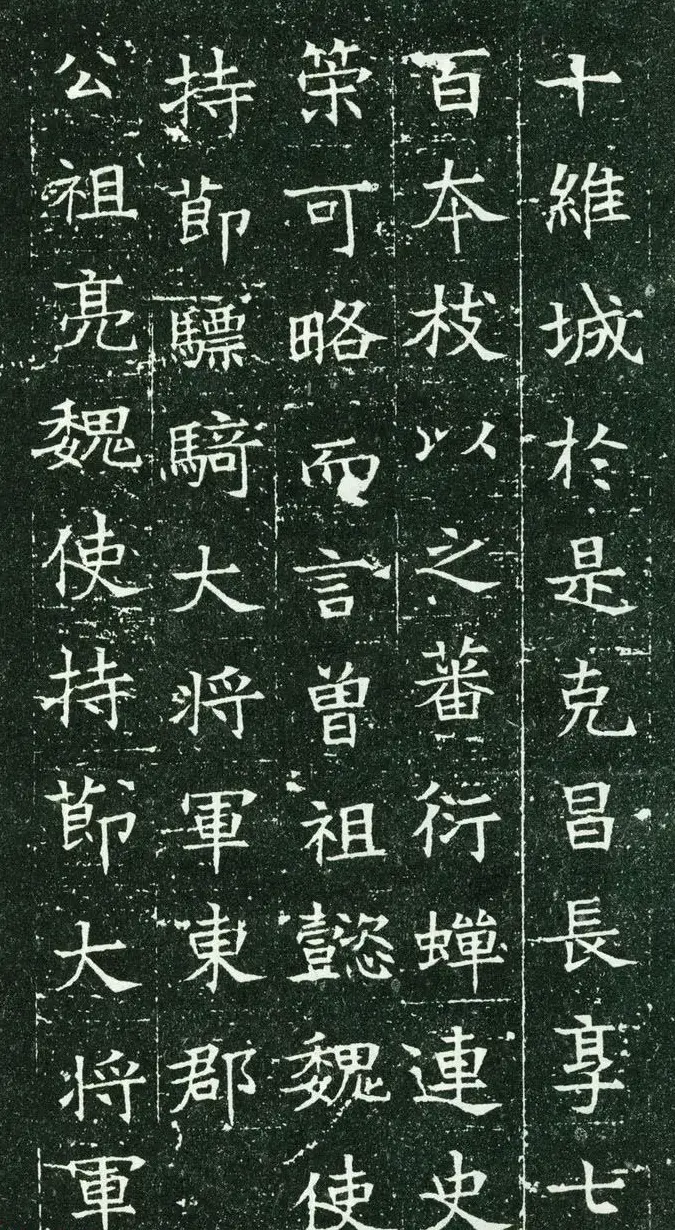 十維城於是克昌長享七
百本枝以之蕃衍蟬連史
策可略而言曾祖懿魏使
持節驃騎大將軍東郡
公祖亮魏使持節大將軍